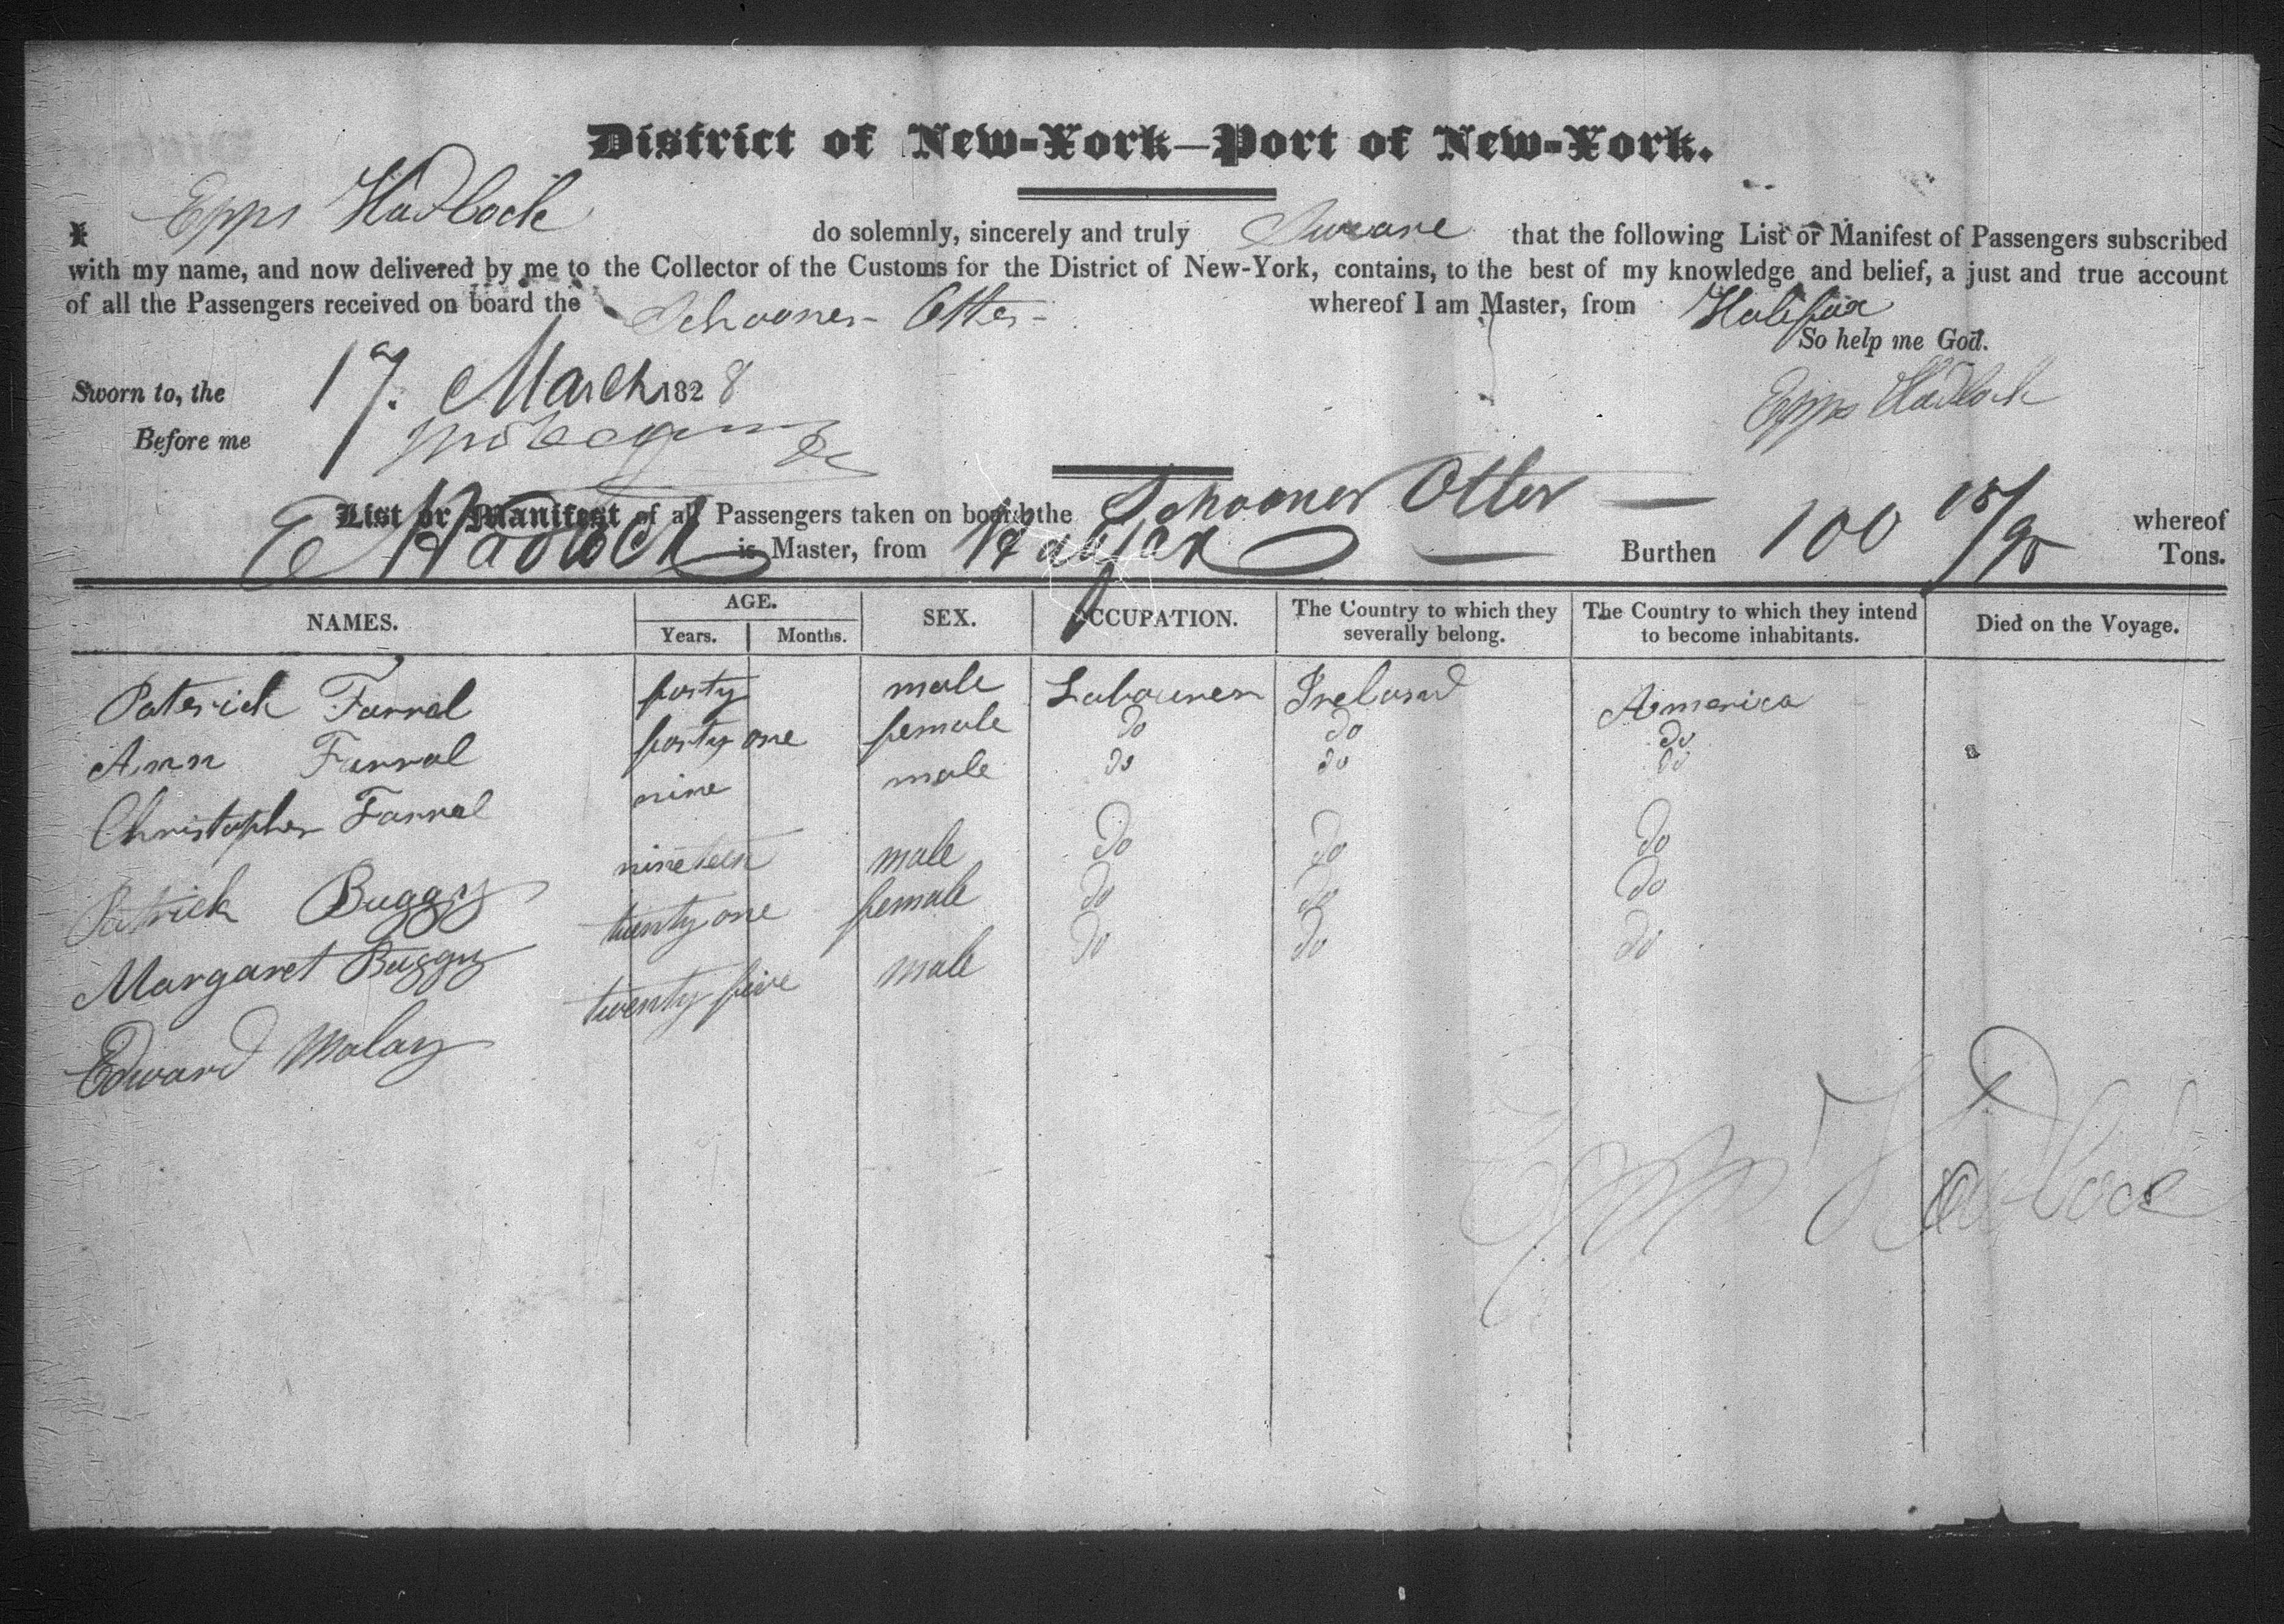 District of New-York—Port of New-York.
I Epps Hadlock do solemnly, sincerely and truly Sweare that the following List or Manifest of Passengers subscribed
with my name, and now delivered by me to the Collector of the Customs for the District of New-York, contains, to the best of my knowledge and belief, a just and true account
of all the Passengers received on board the Schooner Otter whereof I am Master, from Halifax
So help me God.
Sworn to, the 17. March 1828
Epps Hadlock
Before me
List or Manifest of all Passengers taken on board the Schooner Otter whereof
E Hadlock is Master, from Halifax Burthen 100 Tons.
NAMES. AGE. SEX. OCCUPATION. The Country to which they severally belong. The Country to which they intend to become inhabitants. Died on the Voyage.
Years. Months.
Paterick Farral forty male Labourer Ireland America
Ann Farral forty one female do do do
Christopher Farral nine male do do do
Patrick Buggy nineteen male do do do
Margaret Buggy twenty one female do do do
Edward Malay twenty five male do do do
Epps Hadlock